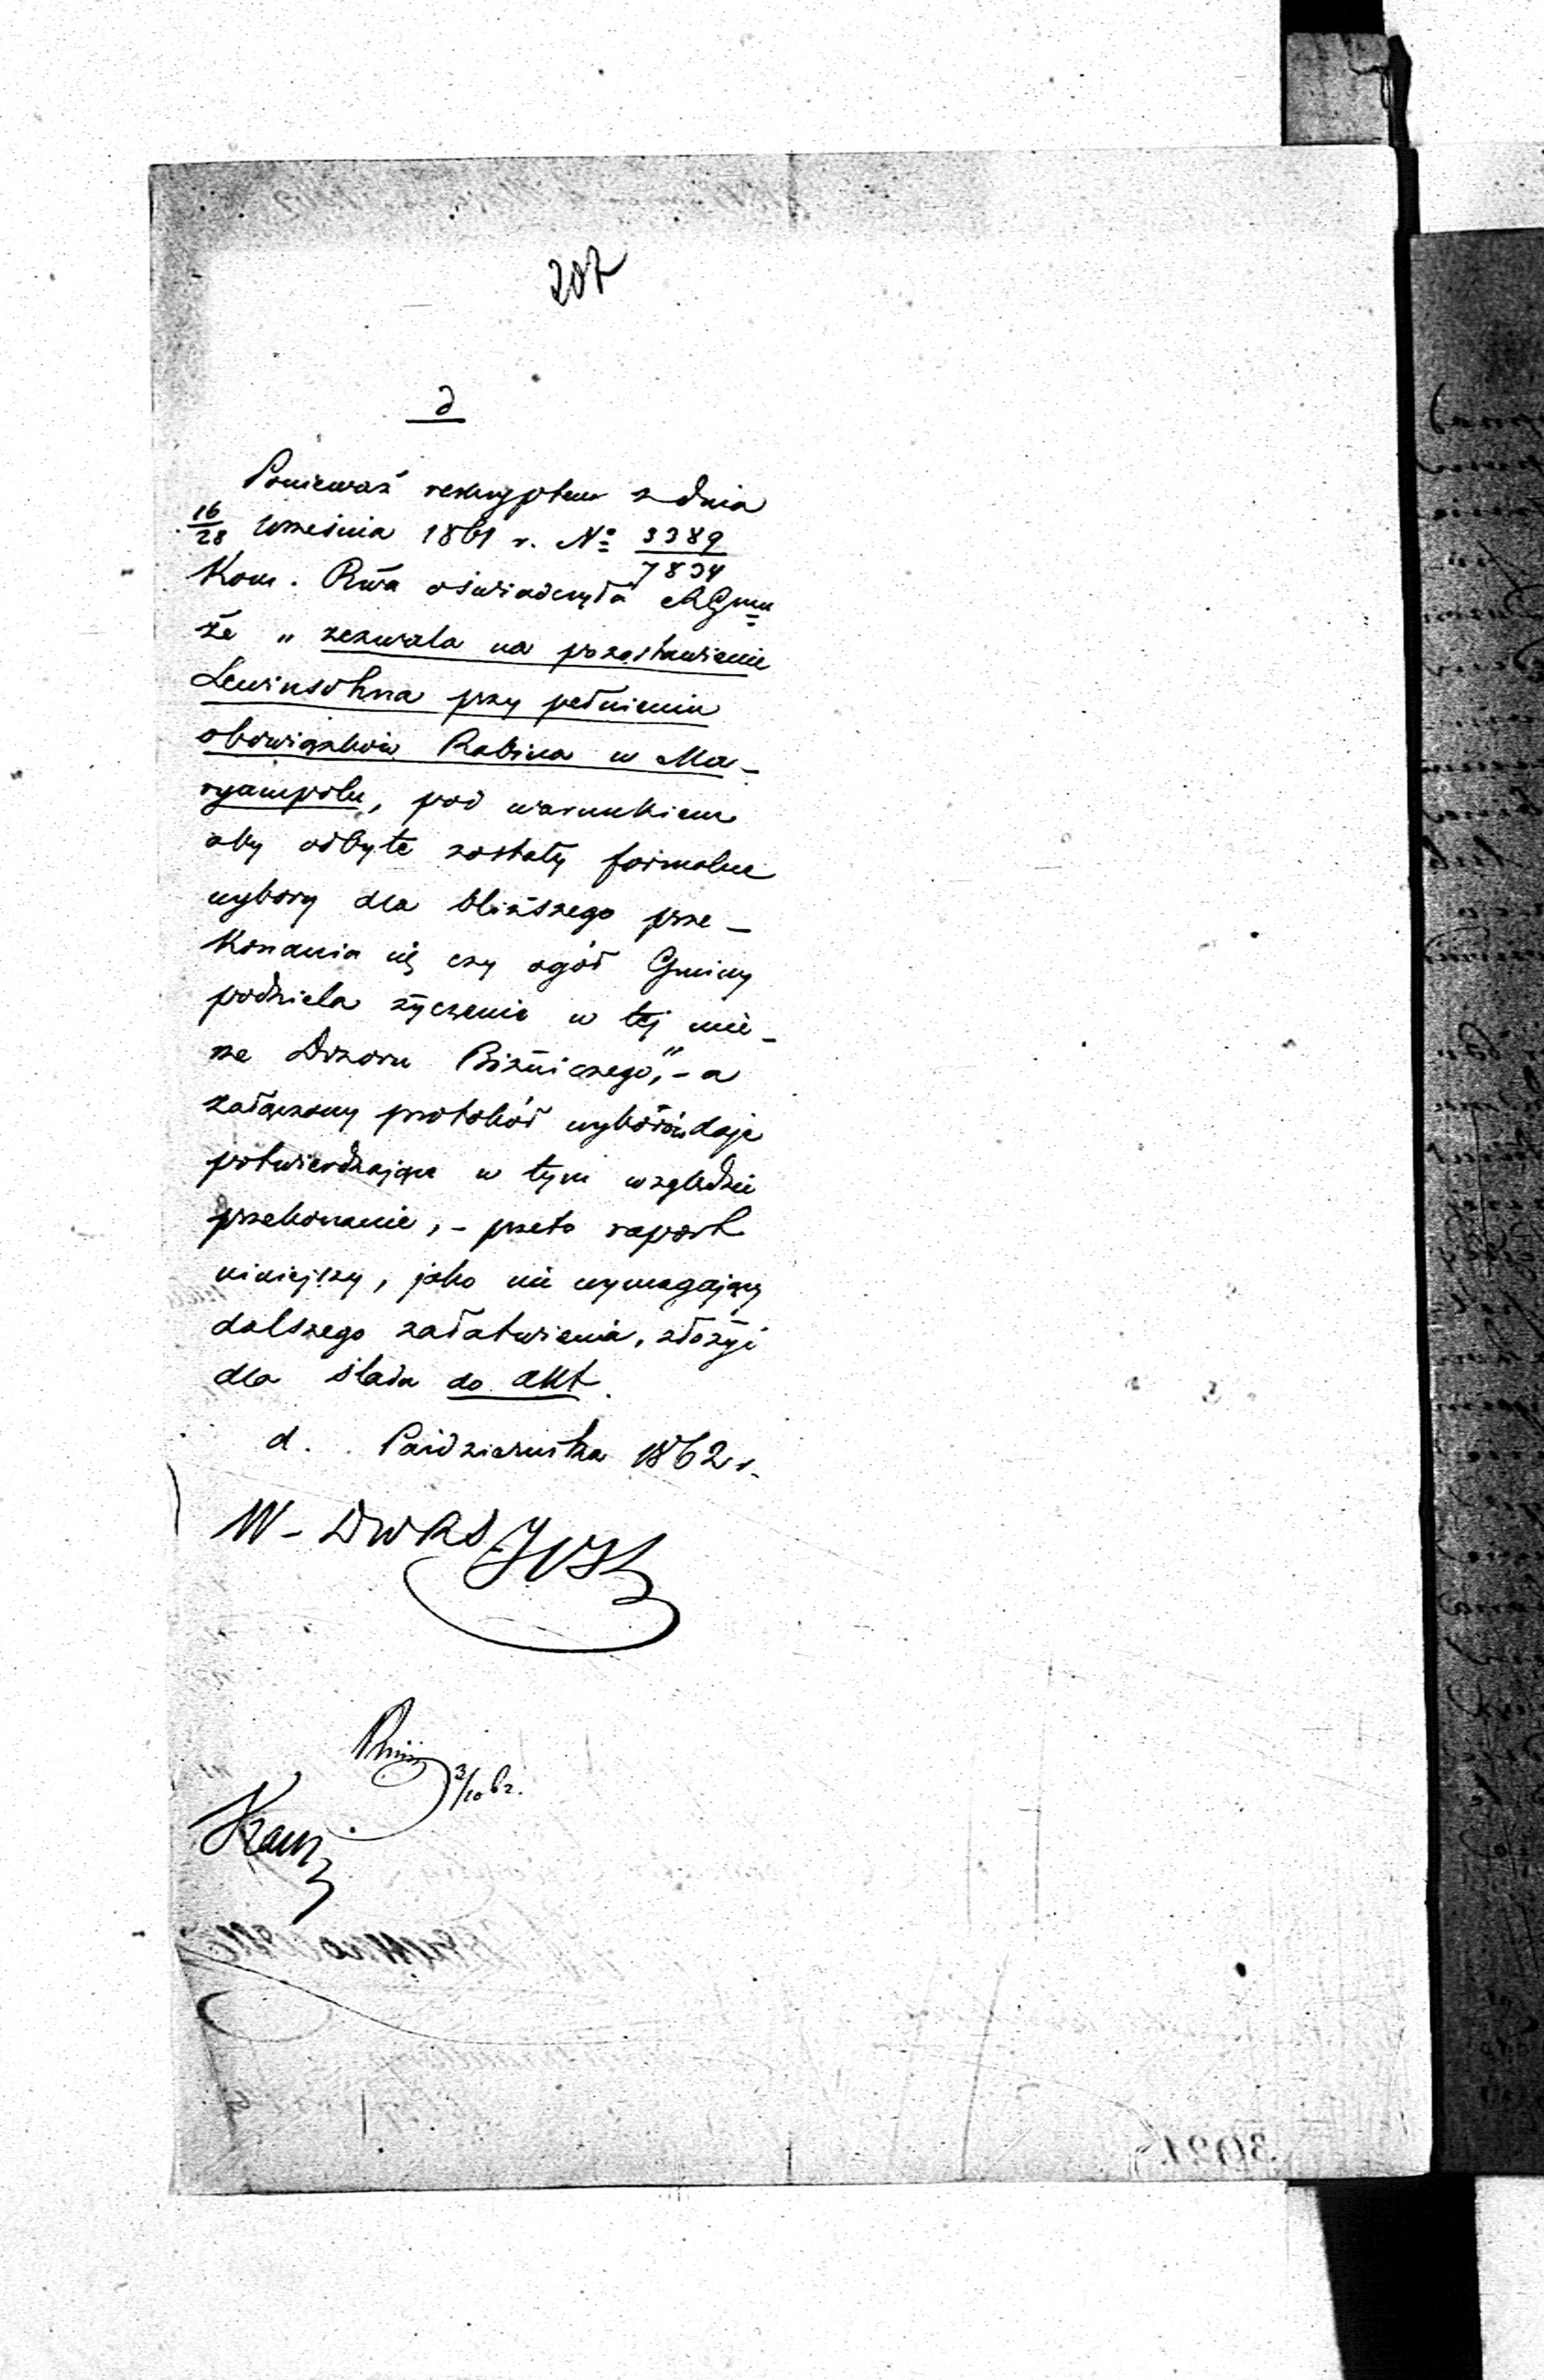 207
d
Ponieważ reskryptem z dnia
16/28 Września 1861 r. No 3389/7834
Kom. Rwa oświadczyła
że „zezwala na pozostawienie
Lewinsohna przy pełnieniu
obowiązków Rabina w Ma-
ryampolu, pod warunkiem
aby odbyte zostały formalne
wybory dla bliższego prze-
konania się czy ogół Gminy
podziela życzenie w tej mie-
rze Dozoru Bóżniczego",- a
załączony protokół wyborów daje
potwierdzające w tym względzie
przekonanie,- przeto raport
niniejszy, jako nie wymagający
dalszego załatwienia, złożyć
dla śladu do akt.
d. Października 1862 r.
3/10 62.
3021